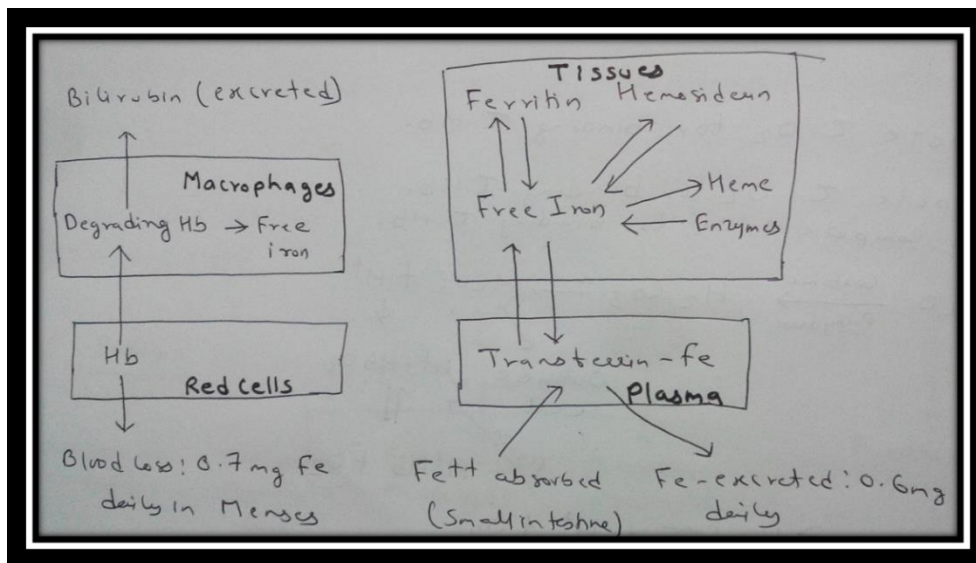 Bilirubin (excreted)
Macrophages
Degrading Hb → Free
iron
Hb
Red cells
Blood loss: 0.7 mg Fe
daily in Menses
Tissues
Ferritin Hemosiderin
Heme
Free Iron
Enzymes
Transferrin-Fe
Plasma
Fe++ absorbed
(Small intestine)
Fe-excreted: 0.6mg
daily